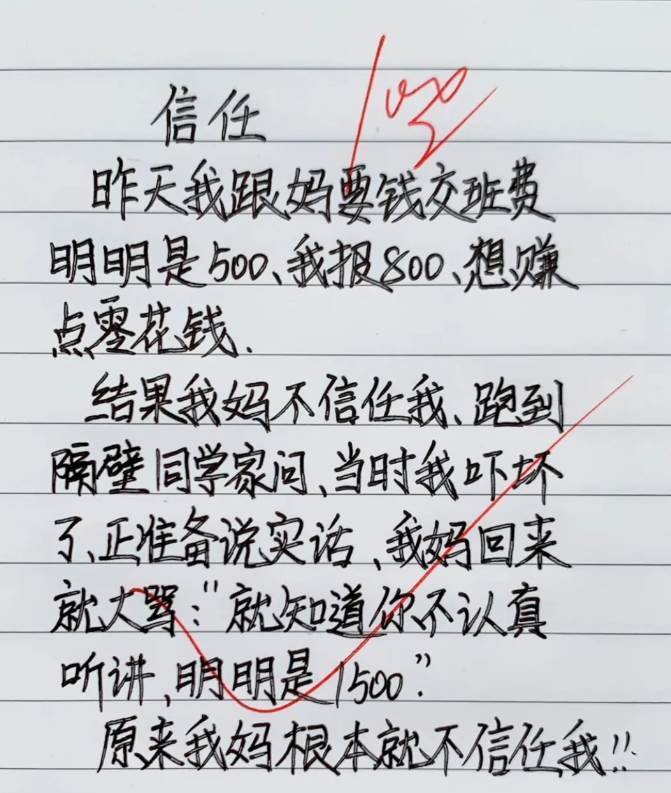 信任
100
昨天我跟妈要钱交班费
明明是500、我报800、想赚
点零花钱.
结果我妈不信任我、跑到
隔壁同学家问、当时我吓坏
了、正准备说实话、我妈回来
就大骂:"就知道你不认真
听讲,明明是1500."
原来我妈根本就不信任我!!